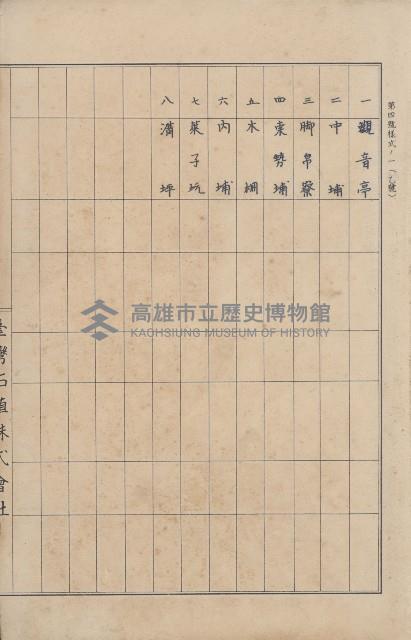 第四號樣式ノ一(乙號)
一 觀音亭
二 中埔
三 脚帛寮
四 東勢埔
五 木柵
六 內埔
七 菜子坑
八 滴坪
高雄市立歷史博物館
KAOHSIUNG MUSEUM OF HISTORY
臺灣石殖株式會社